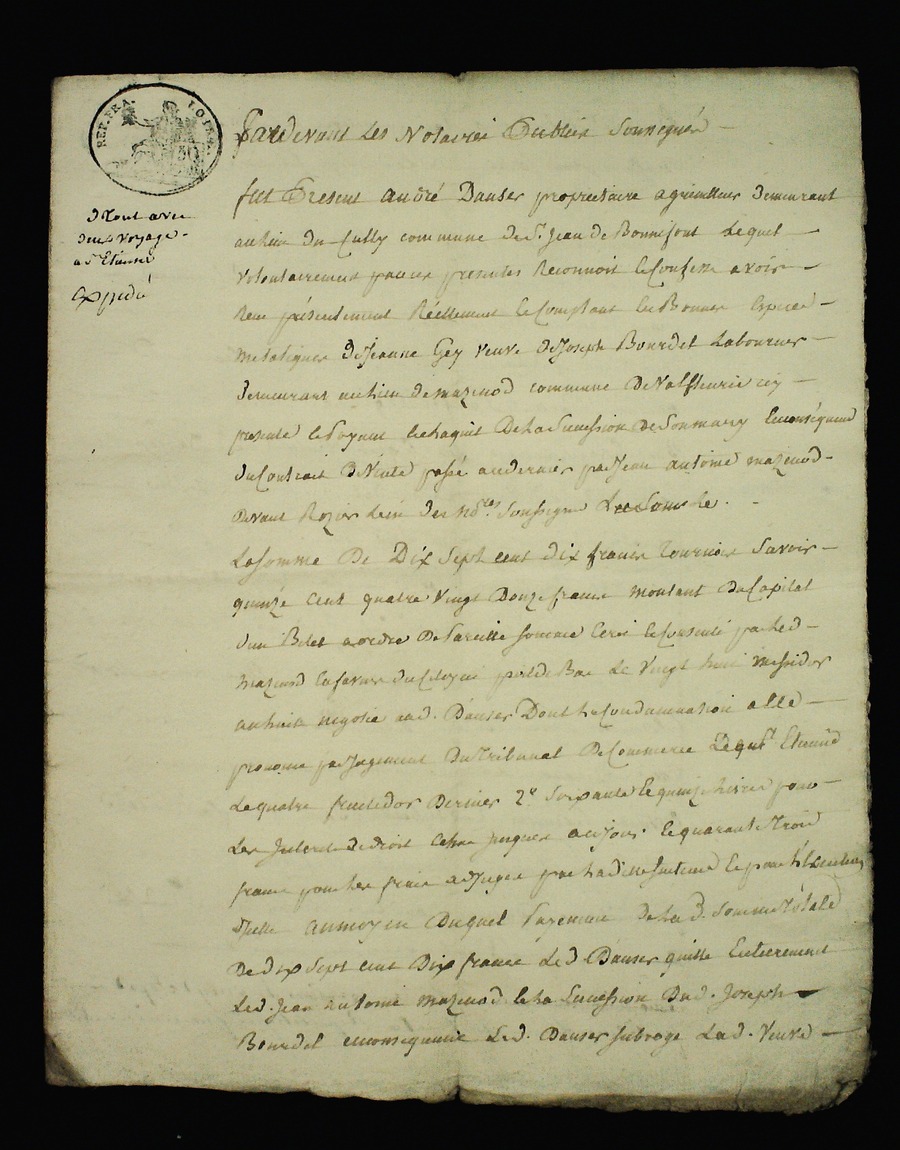 REP. FRA.
droit avec
deux voyage
a St Etienne
Expedié
Pardevant Les Notaires Publics Soussignés
fut Present andré Danser proprietaire agriculteur demeurant
au lieu du commune de St Jean de Bonnefont Lequel
volontairement par ces presentes Reconnoit & Confesse avoir
Reçu présentement Réellement & Comptant En Bonnes Especes
metaliques de Jeanne Gey veuve de Joseph Bourdet Laboureur
demeurant au lieu de mazenod commune de Valfleurie icy
presente & Payant & l'acquit De La Succession de Son mary Enconséquence
du Contrait de Vente passé a ce dernier par Jean antoine mazenod
devant Rozier L'un des Nores Soussignés
La Somme De Dix Sept cent dix francs Tournois Savoir
quinze cent quatre vingt Douze francs montant du Capital
d'un Billet a ordre De Pareille somme & Consenti par led
mazenod En faveur du Citoyen Le Vingt messidor
an huit negotié aud. Danser Dont La Condamnation a été
prononcé par Jugement du Tribunal De Commerce Etienne
Le quatre fructidor Dernier 2º Soixante & quinze pour
Les Interets de droit jusques a ce Jour & quarante Trois
francs pour Les frais adjugés par La d. &
au moyen Duquel Payement de La d. Somme Totale
De dix Sept cent Dix francs Le d Danser quitte Entierement
Led. Jean antoine mazenod & La Succession Dud. Joseph
Bourdet enconsequence Led. Danser subroge Lad. Veuve